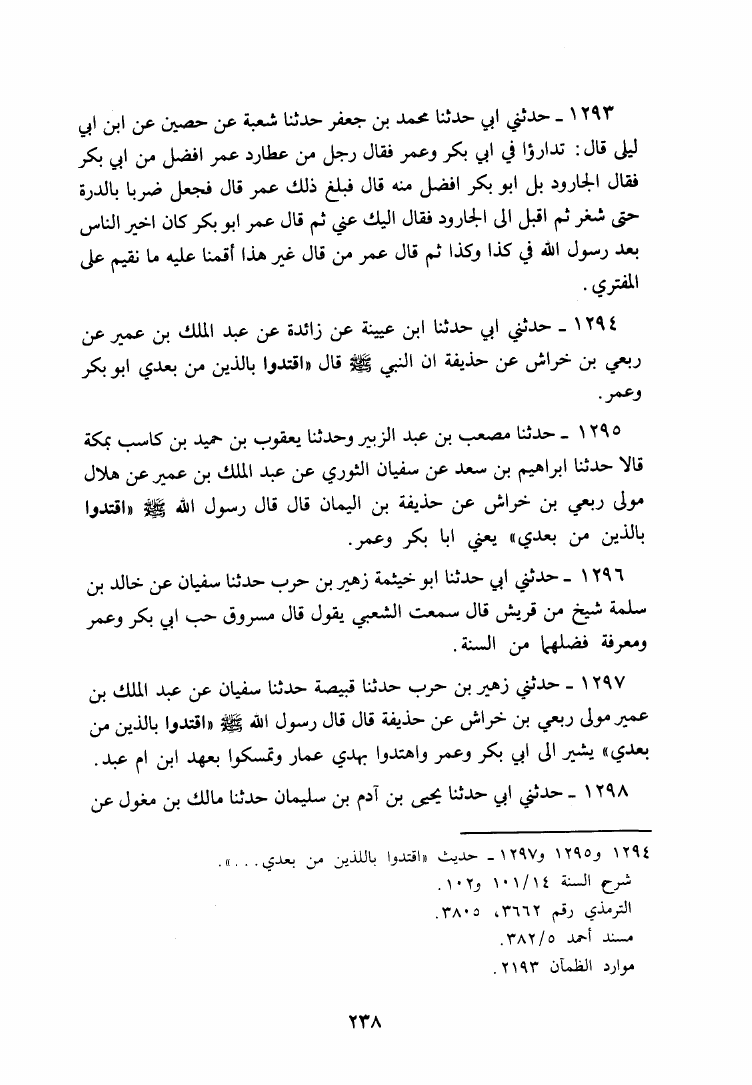 ١٢٩٣ ـ حدثني ابي حدثنا محمد بن جعفر حدثنا شعبة عن حصين عن ابن ابي
ليلى قال : تدارؤا في ابي بكر وعمر فقال رجل من عطارد عمر افضل من ابي بكر
فقال الجارود بل ابو بكر افضل منه قال فبلغ ذلك عمر قال فجعل ضربا بالدرة
حتى شغر ثم اقبل الى الجارود فقال اليك عني ثم قال عمر ابو بكر كان اخير الناس
بعد رسول الله في كذا وكذا ثم قال عمر من قال غير هذا أقمنا عليه ما نقيم على
المفتري .
١٢٩٤ ـ حدثني ابي حدثنا ابن عيينة عن زائدة عن عبد الملك بن عمير عن
ربعي بن خراش عن حذيفة ان النبي ﷺ قال «اقتدوا بالذين من بعدي ابو بكر
وعمر.
١٢٩٥ ـ حدثنا مصعب بن عبد الزبير وحدثنا يعقوب بن حميد بن كاسب بمكة
قالا حدثنا ابراهيم بن سعد عن سفيان الثوري عن عبد الملك بن عمير عن هلال
مولى ربعي بن خراش عن حذيفة بن اليمان قال قال رسول الله ﷺ «اقتدوا
بالذين من بعدي» يعني ابا بكر وعمر.
١٢٩٦ ـ حدثني ابي حدثنا ابو خيثمة زهير بن حرب حدثنا سفيان عن خالد بن
سلمة شيخ من قريش قال سمعت الشعبي يقول قال مسروق حب ابي بكر وعمر
ومعرفة فضلهما من السنة .
١٢٩٧ ـ حدثني زهير بن حرب حدثنا قبيصة حدثنا سفيان عن عبد الملك بن
عمير مولى ربعي بن خراش عن حذيفة قال قال رسول الله ﷺ «اقتدوا بالذين من
بعدي» يشير الى ابي بكر وعمر واهتدوا بهدي عمار وتمسكوا بعهد ابن ام عبد .
١٢٩٨ ـ حدثني ابي حدثنا يحيى بن آدم بن سليمان حدثنا مالك بن مغول عن
١٢٩٤ و١٢٩٥ و١٢٩٧ ـ حديث «اقتدوا باللذين من بعدي . . .» .
شرح السنة ١٠١/١٤ و١٠٢ .
الترمذي رقم ٣٦٦٢، ٣٨٠٥.
مسند أحمد ٣٨٢/٥ .
موارد الظمآن ٢١٩٣ .
٢٣٨